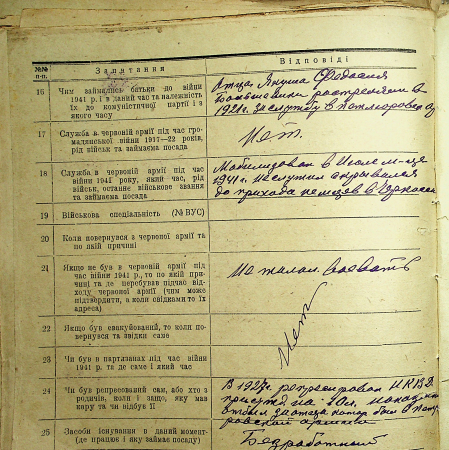 №№ п-п.
Запитання
Відповіді
16
Чим займались батьки до війни
1941 р. і в даний час та належність
їх до комуністичної партії і з
якого часу
Отца Якуша Федосия
Большевики расстреляли в
1921г. за службу в
17
Служба в червоній армії під час гро-
мадянської війни 1917—22 років,
рід військ та займаєма посада
Нет.
18
Служба в червоній армії під час
війни 1941 року, який час, рід
військ, останнє військове звання
та займаєма посада
Мобилизован в Июле м-це
1941г. не служил скрывался
до прихода немцев в Черкассы
19
Військова спеціальність (№ ВУС)
20
Коли повернувся з червоної армії та
по якій причині
21
Якщо не був в червоній армії під
час війни 1941 р., то по якій при-
чині та де перебував підчас від-
ходу червоної армії (чим може
підтвердити, а коли свідками то їх
адреса)
Не желал воевать
22
Якщо був евакуйований, то коли по-
вернувся та звідки саме
Нет
23
Чи був в партизанах під час війни
1941 р. та де саме і який час
24
Чи був репресований сам, або хто з
родичів, коли і защо, яку мав
кару та чи відбув її
В 1927г. репрессирован НКВД
на 10л.
отбыл за отца был в
армии
25
Засоби існування в даний момент-
(де працює і яку займає посаду)
Безработный